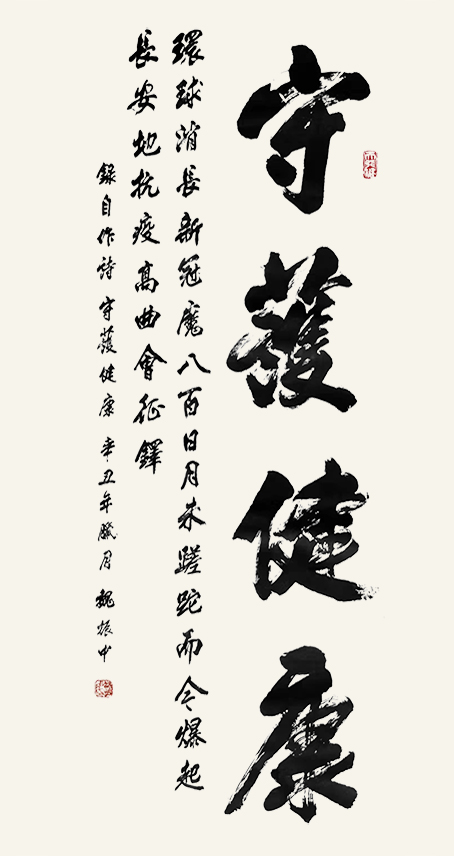 守護健康
環球消長新冠魔八百日月未蹉跎而今爆起
長安地抗疫高曲會征鐸
錄自作詩守護健康辛丑年臘月魏振中